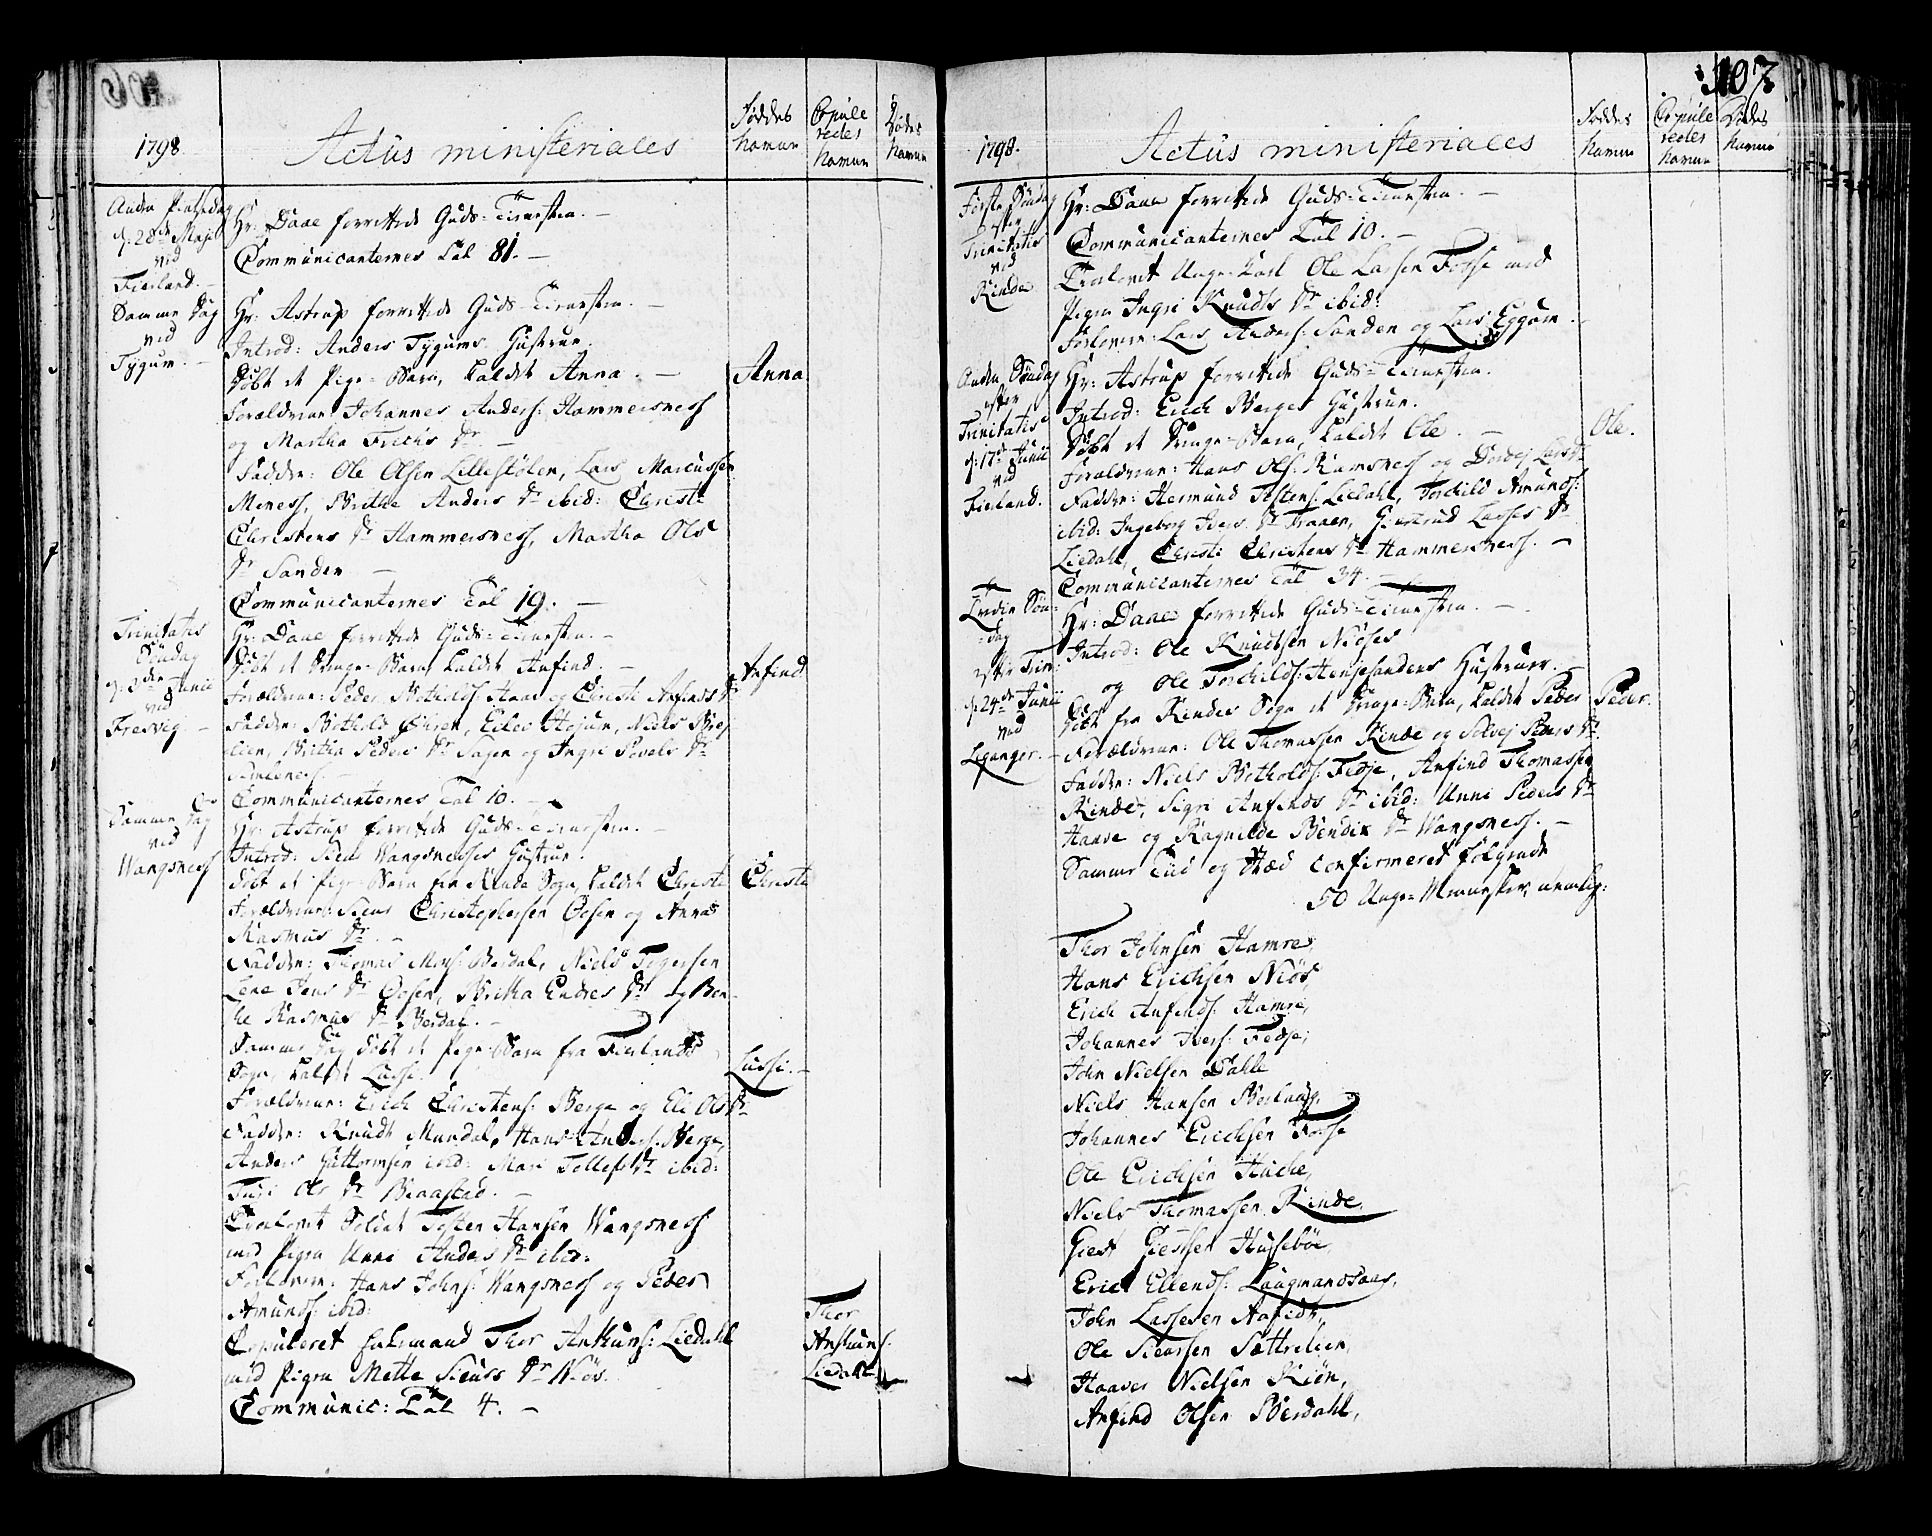 1798.
Actus ministeriales
Føddes Navne
Copule redes Navne
Dødes Navne
Anden Pintsedag
d: 28de Maji
ved
Fierland. –
Hr: Daae forrettede Guds-Tienesten. –
Communicanternes Tal 81. –
Samme Dag
ved
Tygum. –
Hr: Astrup forrettede Guds-Tienesten. –
Introd: Anders Tygums Hustrue.
Døbt et Pige-Barn, kaldet Anna. –
Anna
Forældrene: Johannes Anders: Hammersness
og Martha Frichs Dr. –
Faddere: Ole Olsen Lillestølen, Lars Marcussen
Meness, Brithe Anders Dr ibid: Christi
Christens Dr Hammersness, Martha Ols
Dr Sanden –
Communicanternes Tal 19. –
Trinitatis
Søndag
d: 3den Junii
ved
Fresvig –
Hr: Daae forrettede Guds-Tienesten. –
Døbt et Drenge-Barn kaldet Anfind. –
Anfind
Forældrene: Peder Bothilds: Haae og Christi Anfinds Dr
Faddere: Bothold Øhren, Eilev Hojum, Niels Bræ
lien, Britha Peders Dr Sagen og Ingri Povels Dr
Communicanternes Tal 10. –
Samme Dag
ved
Wangsness
Hr: Astrup forrettede Guds-Tienesten. –
Introd: Siurs Wangsnesses Hustrue.
Døbt et Pige-Barn fra Rinde Sogn, kaldet Christi
Christi
Forældrene: Siur Christophersen Oosen og Anna
Rasmus Dr. –
Faddere: Thomas Mons: Berdal, Niels Togersen
Lene Jens Dr Oosen, Britha Endres Dr og Ben-
the Rasmus Dr Berdal. –
Samme Dag døbt et Pige-Barn fra Fierlands
Sogn, kaldet Lussi.
Lussi. –
Forældrene: Erich Christens: Berge og Eli Ols Dr
Faddere: Knudt Mundal, Hans Anders: Berge,
Anders Guttormsen ibid: Mari Tollefs Dr ibid:
Ols Dr
Trolovet Soldat Tosten Hansen Wangsness
med Pigen Unni Anders Dr ibid:
Forlovere: Hans Johns: Wangsness og Peder
Amunds: ibid:
Copuleret Enkemand Thor Anthuns: Liedahl
med Pigen Mette Siurs Dr Niøs.
Thor
Anthuns:
Liedahl
Communic: Tal 4. –
107
1798.
Actus ministeriales
Føddes Navne
Copule redes Navne
Dødes Navne
Første Søndag
efter
Trinitatis
ved
Rinde
Hr: Daae forrettede Guds-Tienesten. –
Communicanternes Tal 10. –
Trolovet Unge-Karl Ole Larsen Fosse med
Pigen Ingri Knudts Dr ibid:
Forlovere: Lars Anders: Sanden og Lars Eggum.
Anden Søndag
efter
Trinitatis
d: 17de Junii
ved
Fierland.
Hr: Astrup forrettede Guds-Tienesten.
Introd: Erich Berges Hustrue.
Døbt et Drenge-Barn, kaldet Ole. –
Ole.
Forældrene: Hans Ols: Rumsness og Dordej Lars Dr
Faddere: Hermund Tostens: Liedahl, Torchild Amunds:
ibid: Ingeborg Ivers Dr Tranen, Giertrud Lasses Dr
Liedahl, Christi Christens Dr Hammersness. –
Communicanternes Tal 34. –
Tredie Søn-
dag
efter Trin:
d: 24de Junii
ved
Leganger. –
Hr: Daae forrettede Guds-Tienesten. –
Introd: Ole Knudtsen Niøses
og Ole Torchilds: Henjesandens Hustruer. –
Døbt fra Rinde Sogn et Drenge-Barn, kaldet Peder
Peder.
Forældrene: Ole Thomassen Rinde og Solvej Peders Dr
Faddere: Niels Botholds: Fedje, Anfind Thomassen
Rinde, Sigri Anfinds Dr ibid: Unni Peders Dr
Haave og Ragnilde Bendix Dr Wangsness. –
Samme Tid og Stæd confirmeret følgende
50 Unge-Mennesker nemlig:
Thor Johnsen Hamre,
Hans Erichsen Niøs,
Erich Anfinds: Hamre,
Johannes Ivers: Fedje,
John Nielsen Dahle
Niels Hansen Berlaug,
Johannes Erichsen Fosse
Ole Erichsen Huche,
Niels Thomassen Rinde,
Giest Giestsen Husebøe,
Erich Ellends: Laugmandsaas,
John Lassesen
Ole Siursen Sættrelien,
Haaver Nielsen Kiøn,
Anfind Olsen Berdahl,